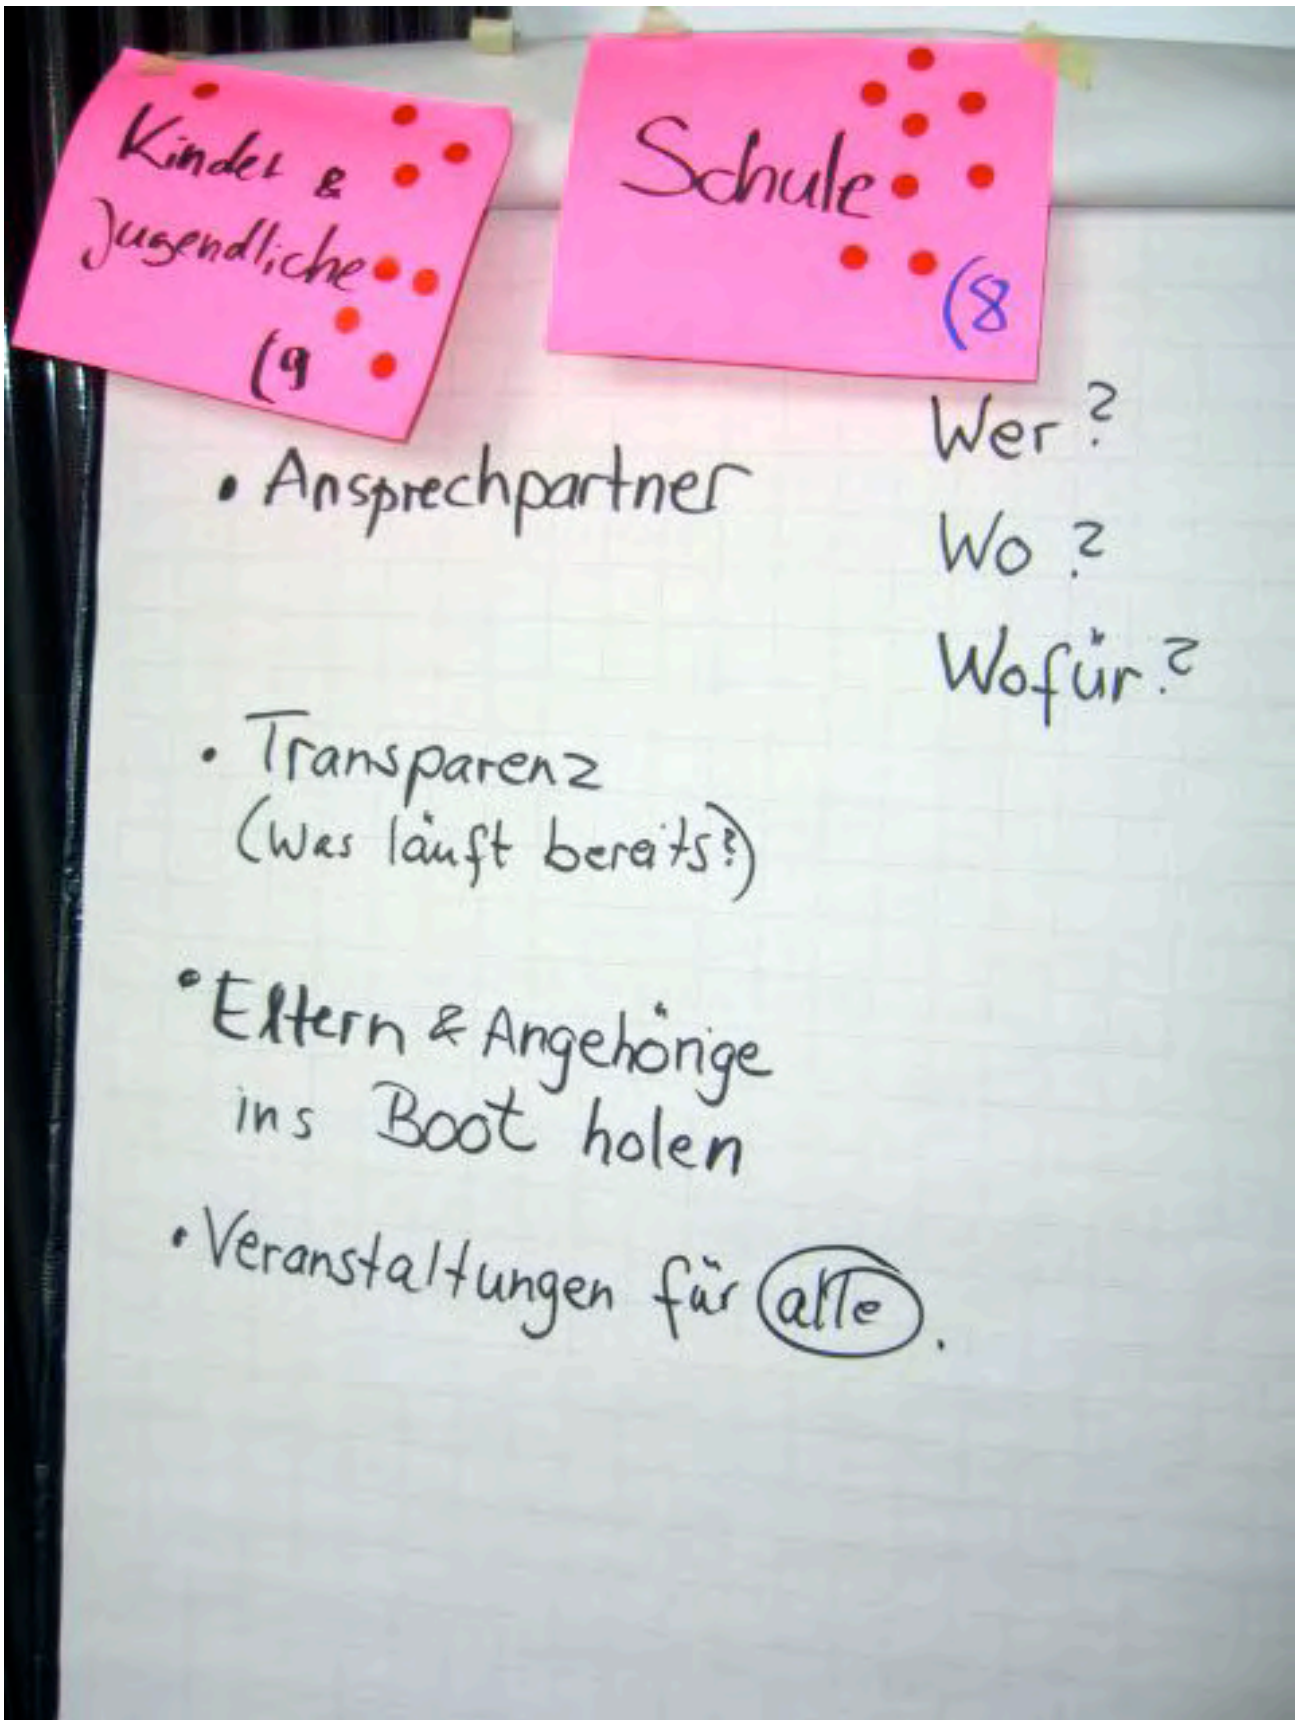 Kinder &
Jugendliche
(9
Schule
(8
• Ansprechpartner
Wer?
Wo?
Wofür?
• Transparenz
(Was läuft bereits?)
• Eltern & Angehörige
ins Boot holen
• Veranstaltungen für alle.